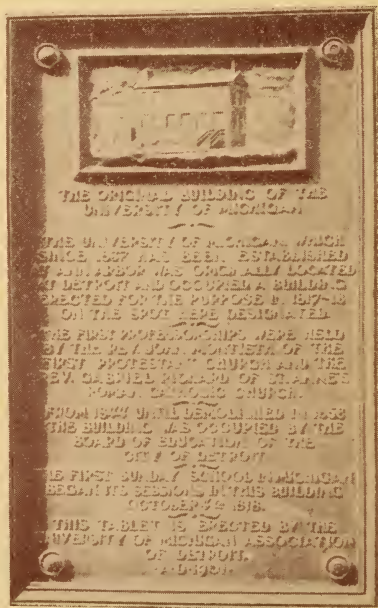 THE ORIGINAL BUILDING OF THE
UNIVERSITY OF MICHIGAN
THE UNIVERSITY OF MICHIGAN, WHICH
SINCE 1837 HAS BEEN ESTABLISHED
AT ANN ARBOR WAS ORIGINALLY LOCATED
AT DETROIT AND OCCUPIED A BUILDING
ERECTED FOR THE PURPOSE IN 1817-18
ON THE SPOT HERE DESIGNATED.
THE FIRST PROFESSORSHIPS WERE HELD
BY THE REV. JOHN MONTIETH OF THE
FIRST PROTESTANT CHURCH AND THE
REV. GABRIEL RICHARD OF ST. ANNE'S
ROMAN CATHOLIC CHURCH.
FROM 1844 UNTIL DEMOLISHED IN 1858
THE BUILDING WAS OCCUPIED BY THE
BOARD OF EDUCATION OF THE
CITY OF DETROIT
THE FIRST SUNDAY SCHOOL IN MICHIGAN
BEGAN ITS SESSIONS IN THIS BUILDING
OCTOBER 1818.
THIS TABLET IS ERECTED BY THE
UNIVERSITY OF MICHIGAN ASSOCIATION
OF DETROIT.
A·D·